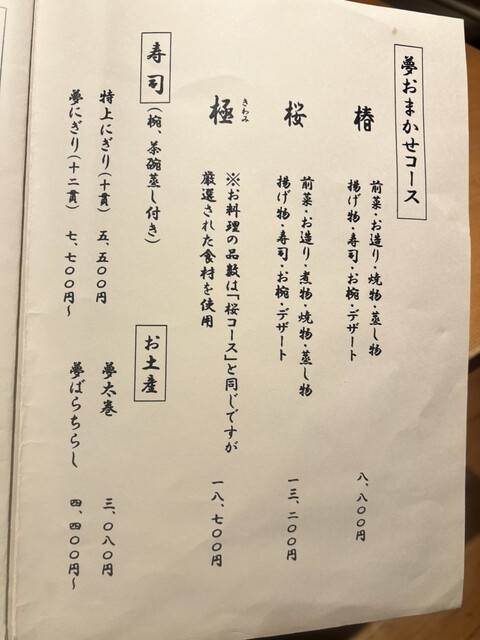 夢おまかせコース
椿
前菜・お造り・焼物・蒸し物
揚げ物・寿司・お椀・デザート
八、八〇〇円
桜
前菜・お造り・煮物・焼物・蒸し物
揚げ物・寿司・お椀・デザート
一三、二〇〇円
きわみ
極
※お料理の品数は「桜コース」と同じですが
厳選された食材を使用
一八、七〇〇円
寿司(椀、茶碗蒸し付き)
特上にぎり(十貫) 五、五〇〇円
夢にぎり(十二貫) 七、七〇〇円~
お土産
夢太巻 三、〇八〇円
夢ばらちらし 四、四〇〇円~